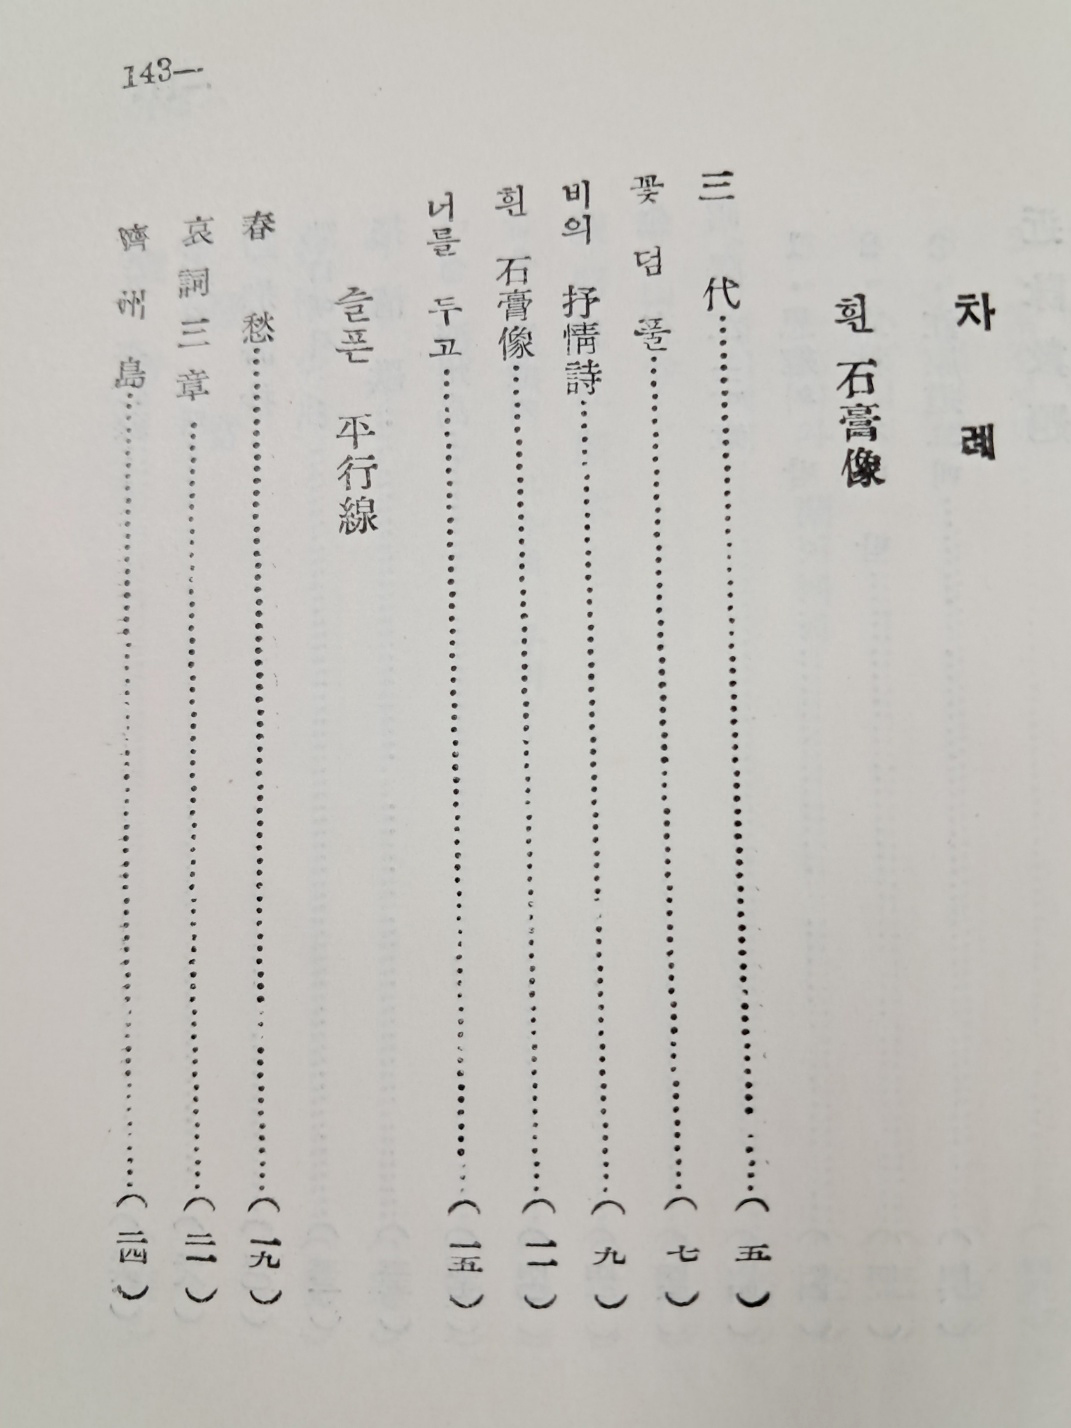 143—
차 례
흰 石膏像
三 代……(五)
꽃 덤 풀……(七)
비의 抒情詩……(九)
흰 石膏像……(一一)
너를 두고……(一五)
슬픈 平行線
春 愁……(一九)
哀詞三章……(二一)
濟州島……(二四)